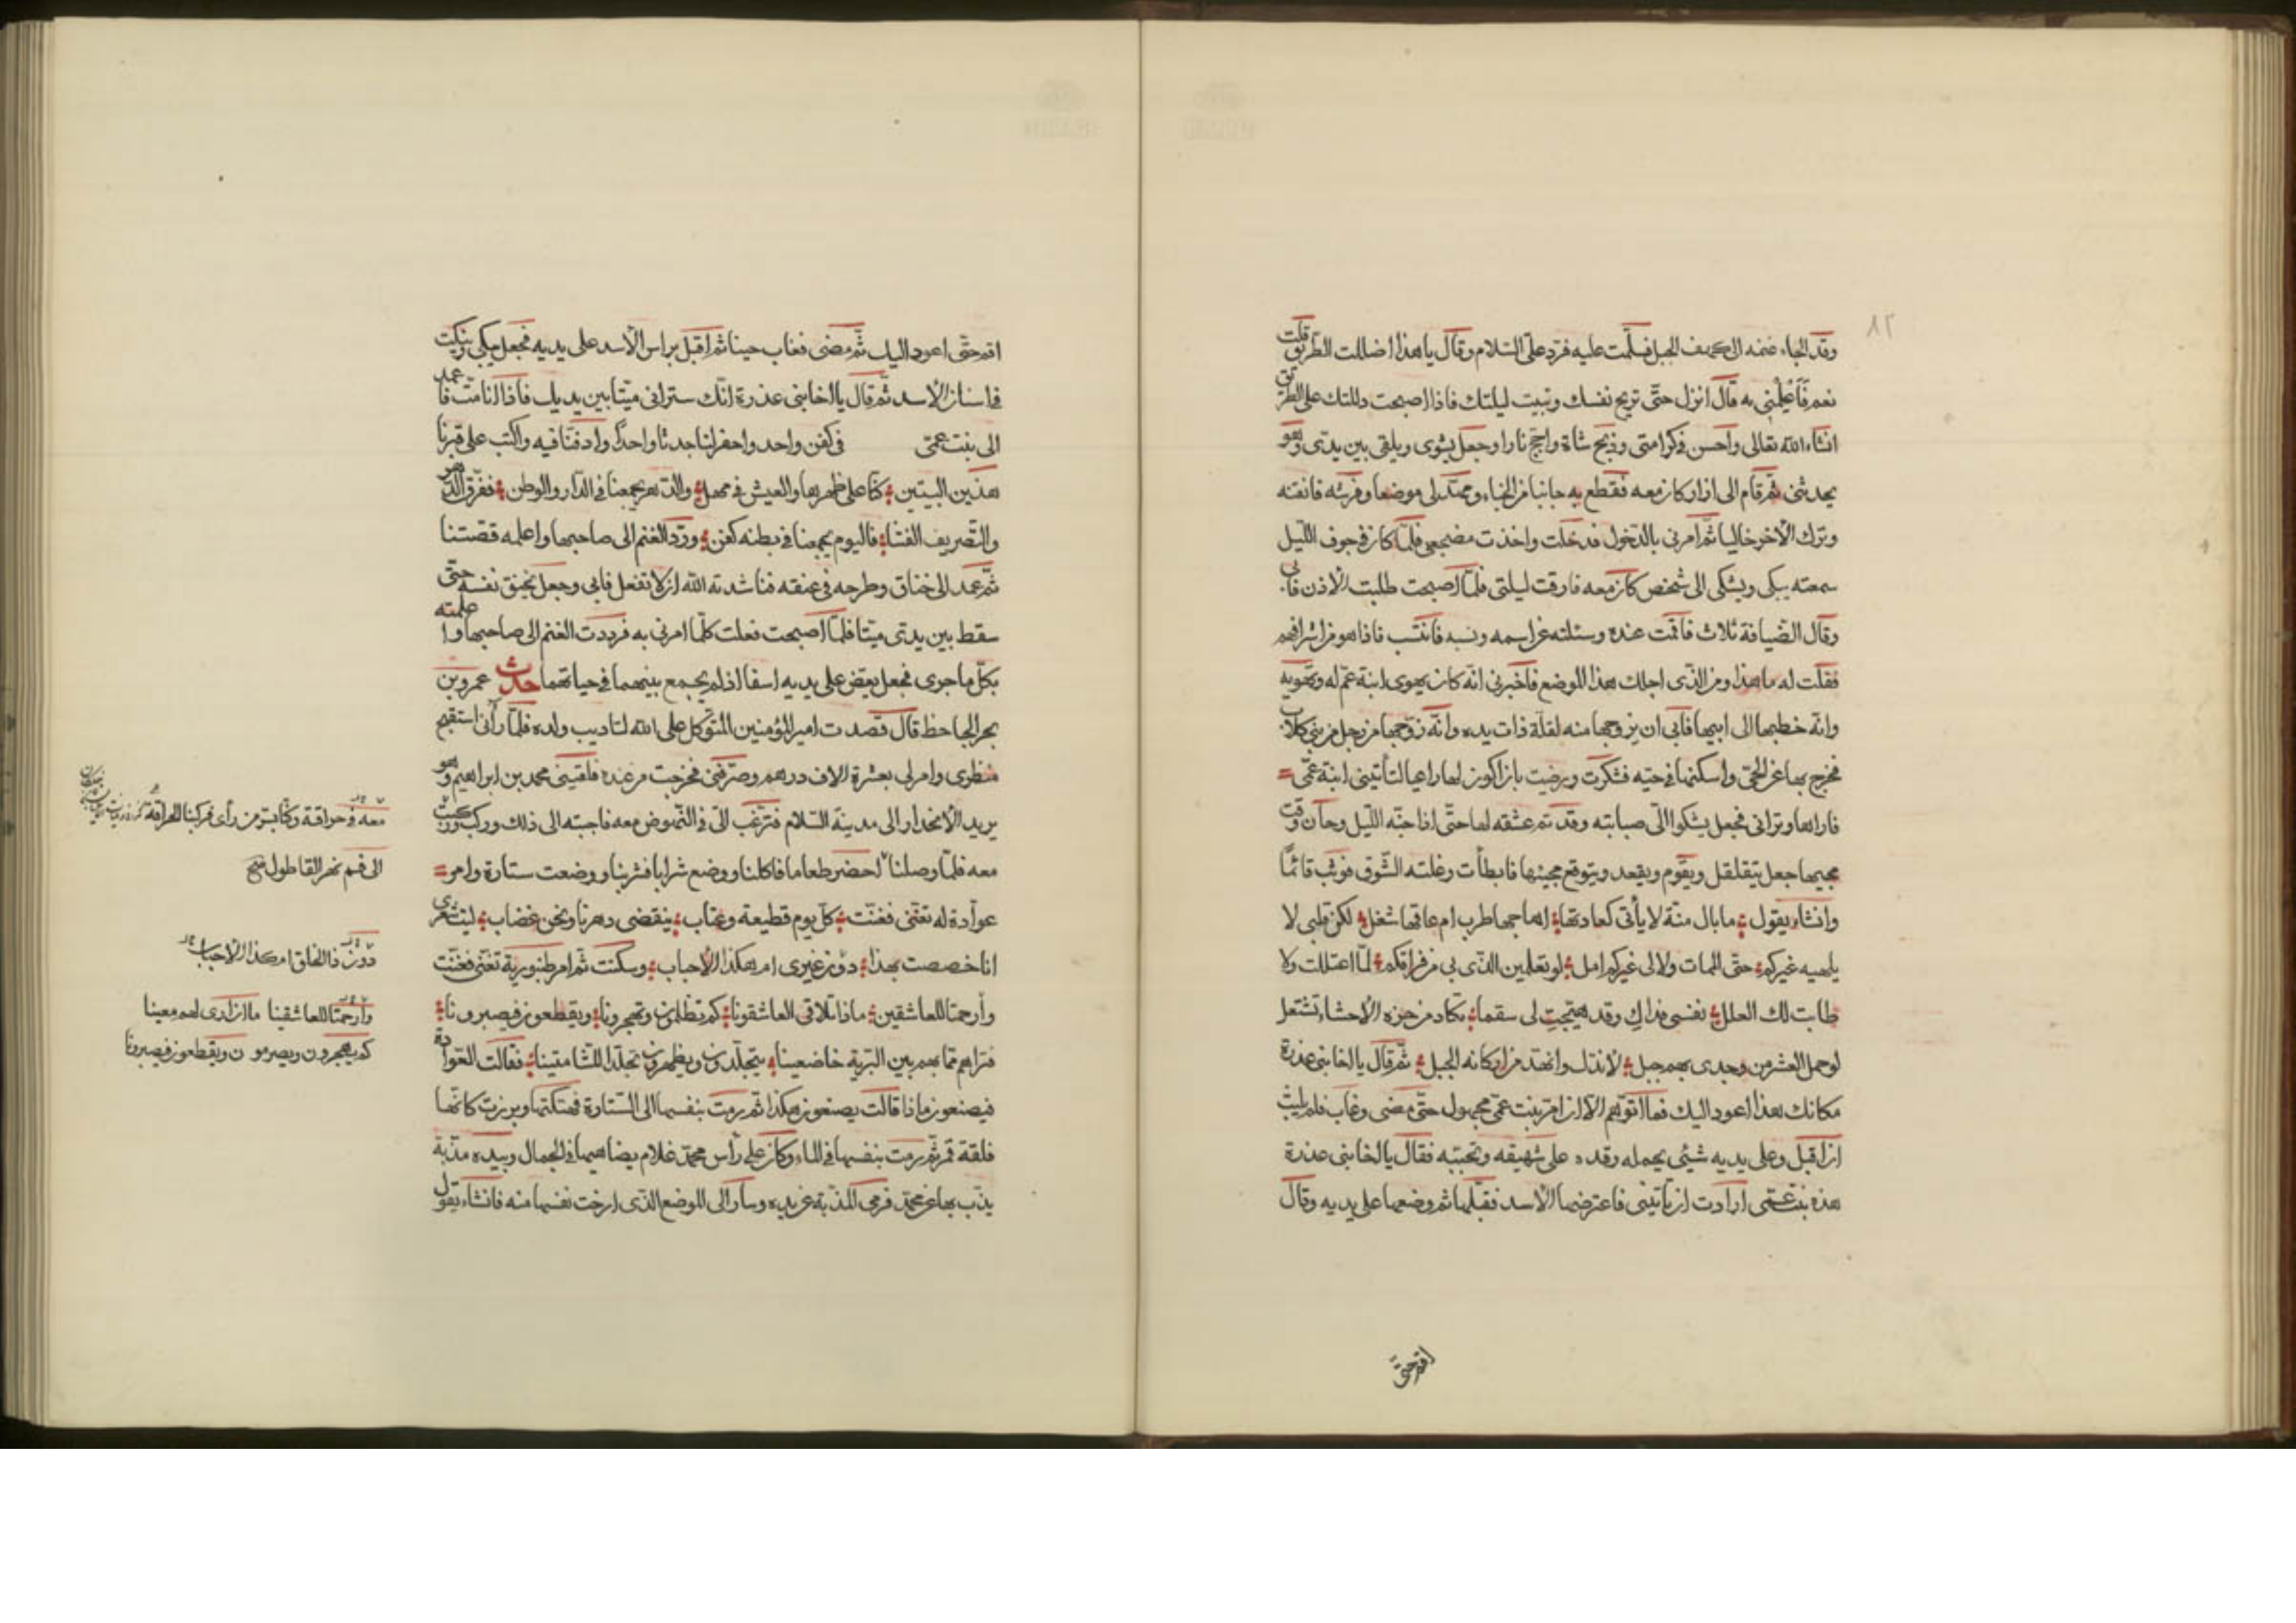 ٨٢
وقد الجاء غنمه الى كهف الجبل فسلّمت عليه فردّ علىّ السّلام وقال يا هذا اضللت الطّريق قلت
نعم فَاَعْلِمْنِى به قال انزل حتّى تريح نفسك وتبيت ليلتك فاذا اصبحت دللتك على الطريق
انشاء الله تعالى واحسن فى كرامتى وذبح شاة واجّج نارا وجعل يشوى ويلقى بين يدىّ وهو
يحدثنى ثمّ قام الى ازار كان معه فقطع به جانبا من الخباء ومهّد لى موضعا وفرشه فانقنه
وترك الآخر خاليا ثمّ امرنى بالدّخول فدخلت واخذت مضجعى فلمّا كان فى جوف اللّيل
سمعته يبكى ويشكى الى شخص كان معه فارقت ليلتى فلمّا اصبحت طلبت الاذن فابى
وقال الضّيافة ثلاث فاقمت عنده وسئلته عن اسمه ونسبه فانتسب فاذا هو من اشرافهم
فقلت له ما هذا ومن الذّى اجلك هذا الموضع فاخبرنى انّه كان يهوى ابنة عمّ له وتهويه
وانّه خطبها الى ابيها فابى ان يزوّجها منه لقلّة ذات يده وانّه زوّجها من رجل من بنى كلاب
فخرج بها عن الحىّ واسكنها فى حيّه فتنكّرت ورضيت بان اكون لها راعيا لتأتينى ابنة عمّى
فاراها وترانى فجعل يشكوا الىّ صبابته وقد تمّ عشقه لها حتّى اذا جنّه اللّيل وحان وقت
مجيها جعل يتقلقل ويقوم ويقعد ويتوقع مجيئها فابطأت وغلبته الشّوق فوثب قائما
وانشاء يقول ما بال ميّة لا يأتى كعادتها اهاجها طرب ام عاقها شغل لكن قلبى لا
يلهيه غيركم حتّى الممات ولا لى غيركم امل لو تعلمين الذّى بى من فراقكم لمّا اعتللت ولا
طابت لك العلل نفسى فداك وقد هيّجت لى سقما تكاد من حزه الاحشاء تشتعل
لو حمل العشر من وجدى بهم جبل لانذل وانهدّ من اركانه الجبل ثمّ قال يا اخا بنى عذرة
مكانك هذا اعود اليك فما اتوّهم الا ان امر بنت عمّى مجهول حتّى مضى وغاب فلم يلبث
ان اقبل وعلى يديه شئى يحمله وقد علا شهيقه ونحيبه فقال يا اخا بنى عذرة
هذه بنت عمّى ارادت ان تأتينى فاعترضها الاسد فقتلها ثم وضعها على يديه وقال
اقم حتّى
اقم حتّى اعود اليك ثمّ مضى فغاب حينا ثم اقبل براس الأسد على يديه فجعل يبكى وينكت
فى اسنان الاسد ثمّ قال يا اخا بنى عذرة انّك سترانى ميّتا بين يديك فاذا انا متّ فاعمد
الى بنت عمّى فى كفن واحد واحفر لنا جدثا واحدًا وادفنّا فيه واكتب على قبرنا
هذين البيتين كنّا على ظهرها والعيش فى مهل والدّهر يجمعنا فى الدّار والوطن ففرّق الدّهر
والتّصريف الفتنا فاليوم يجمعنا فى بطنه كفن وردّ الغنم الى صاحبها واعلمه قصّتنا
ثمّ عمد الى خناق وطرحه فى عنقه فناشدته الله ان لا تفعل فابى وجعل يخنق نفسه حتّى
سقط بين يدىّ ميّتا فلمّا اصبحت فعلت كلّما امرنى به فرددت الغنم الى صاحبها واعلمته
بكلّ ما جرى فجعل يعضّ على يديه اسفا اذ لم يجمع بينهما فى حياتهما حدّث عمرو بن
بحر الجاحظ قال قصدت امير المؤمنين المتوّكل على الله لتاديب ولده فلمّا رأنى استقبح
منظرى وامر لى بعشرة الاف درهم وصرّفنى فخرجت من عنده فلقينى محمد بن ابراهيم وهو
يريد الأنحدار الى مدينة السّلام فترغّب الىّ فى النّهوض معه فاجبته الى ذلك وركب وركبت
معه فلمّا وصلنا احضر طعاما فاكلنا ووضع شرابا فشربنا ووضعت ستارة وامر
عوادة له تغنّى فغنّت كلّ يوم قطيعة وعتاب ينقضى دهرنا ونحن غضاب ليت شعرى
انا خصصت بهذا دون غيرى ام هكذا الأحباب وسكنت ثمّ امر طنبورية تغنّى فغنّت
وارحمتا للعاشقين ماذا تلاقى العاشقونا كم يظلمون ويهجرونا ويقطعون فيصبرونا
فتراهم ممّا بهم بين البريّة خاضعينا يتجلّدون ويظهرون تجلّدا للشّامتينا فقالت العوّادة
فيصنعون ماذا قالت يصنعون هكذا ثمّ رمت بنفسها الى السّتارة فهتكتها وبرزت كانّها
فلقة قمر ثمّ رمت بنفسها فى الماء وكان على رأس محمّد غلام يضاهيها فى الجمال وبيده مذبّة
يذبّ بها عن محمّد فرمى المذبّة عن يده وسار الى الموضع الذّى ارخت نفسها منه فانشاء يقول
معه فى حراقة وكنّا بسرّ من رأى فركبنا الحراقة
الى فم نهر القاطول صح
دون ذا الخلق ام كذا الأحباب
وارحمتا للعاشقينا ما ان ارى لهم معينا
كم يهجرون ويصرمون ويقطعون فيصبرونا